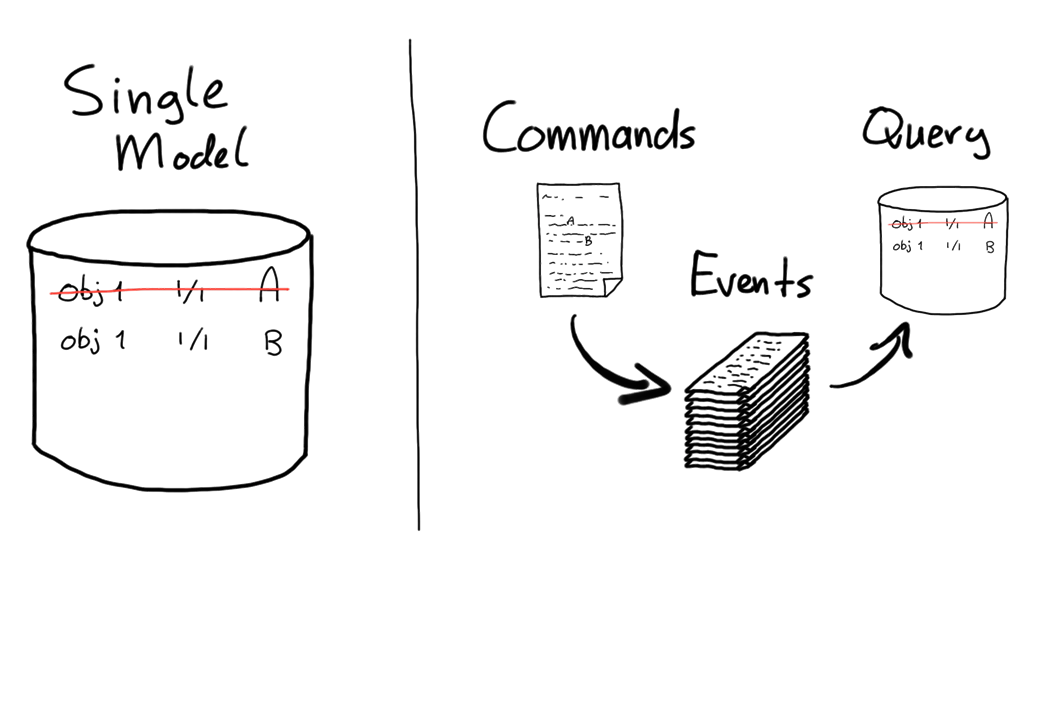 Single
Model
obj 1 1/1 A
obj 1 1/1 B
Commands
A
B
Events
Query
obj 1 1/1 A
obj 1 1/1 B